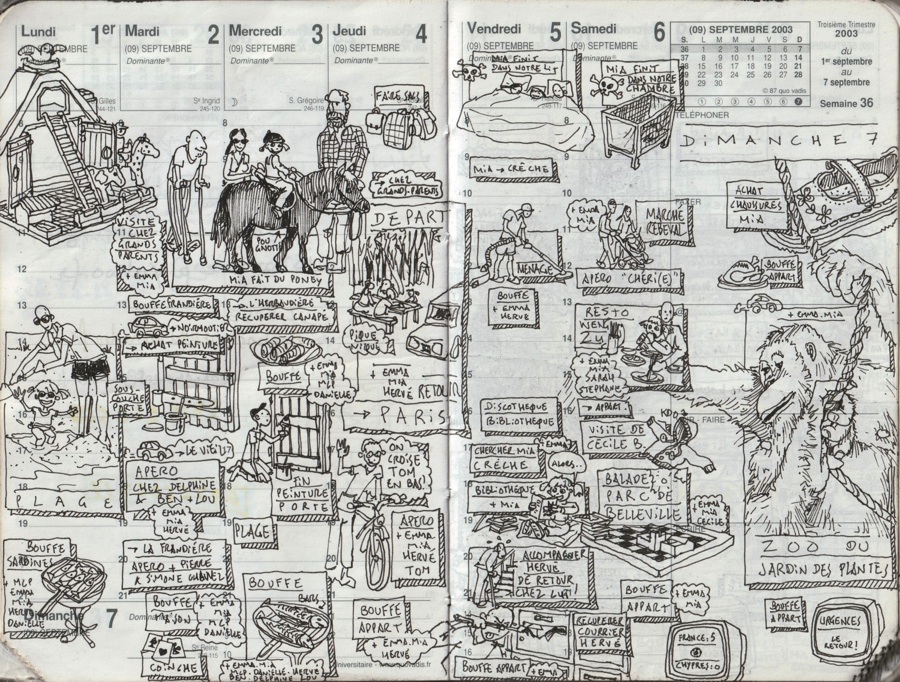 Lundi 1er
Mardi 2
(09) SEPTEMBRE
Dominante
St Ingrid
245-120
Mercredi 3
(09) SEPTEMBRE
Dominante
S. Grégoire
246-119
Jeudi 4
(09) SEPTEMBRE
Dominante
FAIRE SACS
CHEZ
GRANDS-PARENTS
DEPART
VISITE
CHEZ
GRANDS
PARENTS
+ EMMA
MIA
MIA FAIT DU PONEY
BOUFFE FRANDIÈRE
→ NOIRMOUTIER
→ ACHAT PEINTURE
→ L'HERBAUDIÈRE
RECUPERER CANAPE
PIQUE
NIQUE
SOUS-
COUCHE
PORTE
BOUFFE
+ EMMA
MIA
MLP
DANIELLE
+ EMMA
MIA
HERVE RETOUR
→ PARIS
PLAGE
→ LE VIEIL
APERO
CHEZ DELPHINE
& BEN + LOU
+ EMMA
MIA
HERVE
FIN
PEINTURE
PORTE
PLAGE
ON
CROISE
TOM
EN BAS!
APERO
+ EMMA
MIA
HERVE
TOM
BOUFFE
SARDINES
+ MLP
EMMA
MIA
HERVE
DANIELLE
→ LA FRANDIÈRE
APERO + PIERRE
& SIMONE
BOUFFE
MAISON
+ EMMA
MIA
MLP
DANIELLE
COINCHE
BOUFFE
BARS
+ EMMA. MIA
MLP. DANIELLE. HERVE
BEN. DELPHINE. LOU
BOUFFE
APPART
+ EMMA. MIA
HERVE
Dimanche 7
Vendredi 5
(09) SEPTEMBRE
Dominante
MIA FINIT
DANS NOTRE LIT
MIA → CRÊCHE
MENAGE
BOUFFE
+ EMMA
HERVE
DISCOTHEQUE
BIBLIOTHEQUE
CHERCHER MIA
CRÊCHE
+ EMMA
ALORS..
BIBLIOTHEQUE
+ MIA
ACCOMPAGNER
HERVE
DE RETOUR
CHEZ LUI!
BOUFFE APPART
+ EMMA
Samedi 6
(09) SEPTEMBRE
MIA FINIT
DANS NOTRE
CHAMBRE
+ EMMA
MIA
MARCHE
REBEVAL
APERO "CHÉRI(E)"
RESTO
WENZ
ZY
+ EMMA
MIA
SARAH
STEPHANE
→ APPART.
VISITE DE
CECILE B.
KDO
BALADE
PARC DE
BELLEVILLE
+ EMMA
MIA
CECILE
BOUFFE
APPART
+ EMMA
MIA
RECUPERER
COURRIER
HERVÉ
FRANCE: 5
CHYPRE: 0
(09) SEPTEMBRE 2003
S. L M M J V S D
36 1 2 3 4 5 6 7
37 8 9 10 11 12 13 14
38 15 16 17 18 19 20 21
39 22 23 24 25 26 27 28
40 29 30
© 87 quo vadis
Troisième Trimestre
2003
du
1er septembre
au
7 septembre
Semaine 36
TÉLÉPHONER
DIMANCHE 7
ACHAT
CHAUSSURES
MIA
BOUFFE
APPART
+ EMMA. MIA
FAIRE
ZOO DU
JARDIN DES PLANTES
BOUFFE
APPART
URGENCES
LE
RETOUR!